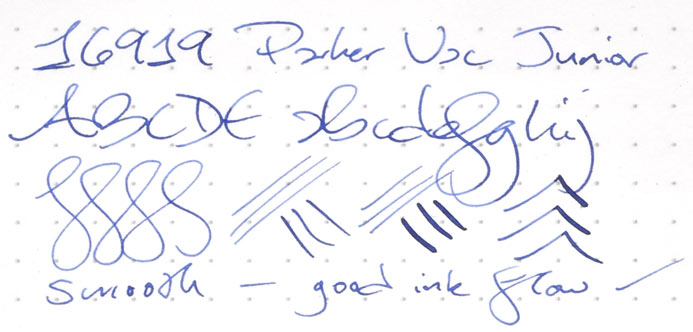 16919 Parker Vac Junior
ABCDE abcdefghij
smooth — good ink flow